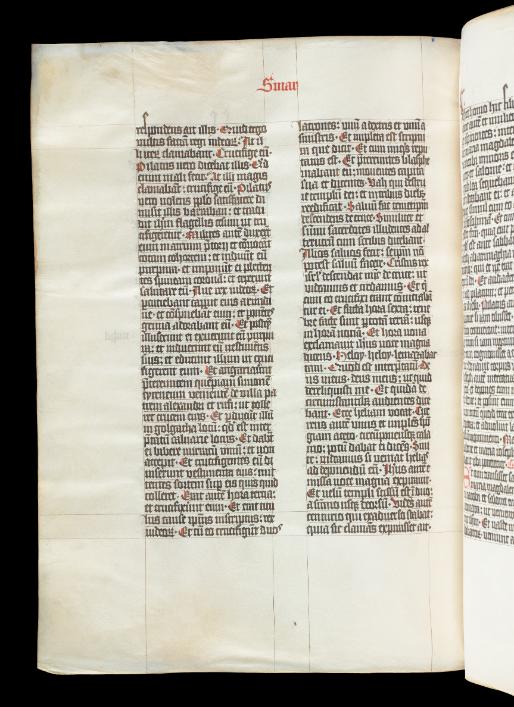 Smar
respondens ait illis. Quid ergo
vultis faciā regi iudeoꝝ. At il
li iteꝝ clamabant. Crucifige eū.
Pilatus vero dicebat illis. Qͥd
enim mali fecit. At illi magis
clamabāt: crucifige eū. Pilatꝰ
autē volens pplo satisfacere di
misit illis barabban: et tradi
dit ih̄m flagellis cesum ut cru
cifigeretur. Milites autē duxert̄
eum in atrium p̄torij et cōuocāt
totam cohortem: et induūt eū
purpura. et imponūt ei plecten
tes spineam coronā: et ceperunt
salutare eū. Aue rex iudeoꝝ. Et
percutiebāt caput eius arundi
ne. et cōspuebāt eum: et ponētes
genua adorabant eū. Et postqͣ̄
illuserunt ei exuerunt eū purpu
ra: et induerunt eū vestimētis
suis. et educunt illum ut cruci
figerent eum. Et angariauer̄t
pretereuntem quempiam simonē
cyreneum venientē de villa pa
trem alexandri et rufi: ut tolle
ret crucem eius. Et perducūt illū
in golgatha locū: qd̓ est inter
pretatū caluarie locus. Et dabāt
ei bibere mirratū vinū: et non
accepit. Et crucifigentes eū di
uiserunt vestimenta eius. mit
tentes sortem sup eis quis quid
tolleret. Erat autē hora tercia:
et crucifixerunt eum. Et erat titu
lus cause ip̄ius inscriptus: rex
iudeoꝝ. Et cū eo crucifigūt duos
latrones: unū a dextris et unū a
sinistris. Et impleta est scriptu
ra que dicit. Et cum iniqͥs repu
tatus est. Et pretereuntes blasphe
mabant eū: mouentes capita
sua et dicentes. Vah qui destru
it templū dei: et in tribus diebꝫ
reedificat. Saluū fac temetipm̄
descendens de cruce. Similiter et
summi sacerdotes illudentes ad al
terutrū cum scribis dicebant.
Alios saluos fecit: seipm̄ nō
potest saluū facere. Cristus rex
isrl̓ descendat nūc de cruce: ut
videamus et credamus. Et qͥ
cum eo crucifixi erant cōuiciabā
tur ei. Et facta hora sexta: tene
bre facte sunt p totā terrā: usqꝫ
in horā nonā. Et hora nona
exclamauit ihus voce magna
dicens. Heloy. heloy. lemazabat
tani. Quod est interpretatū: de
us meus. deus meus: ut quid
dereliquisti me. Et quidā de
circumstantibꝫ audientes dice
bant. Ecce helyam vocat. Cur
rens autē unus et implens spō
giam aceto. circūponensqꝫ cala
mo: potū dabat ei dicēs. Sini
te: videamus si veniat helyas
ad deponendū eū. Ihus autē e
missa voce magna expirauit.
Et velū templi scissū est ī duo:
a sūmo usqꝫ deorsū. Videns autē
centurio qui ex aduerso stabat:
quia sic clamās expirasset ait.